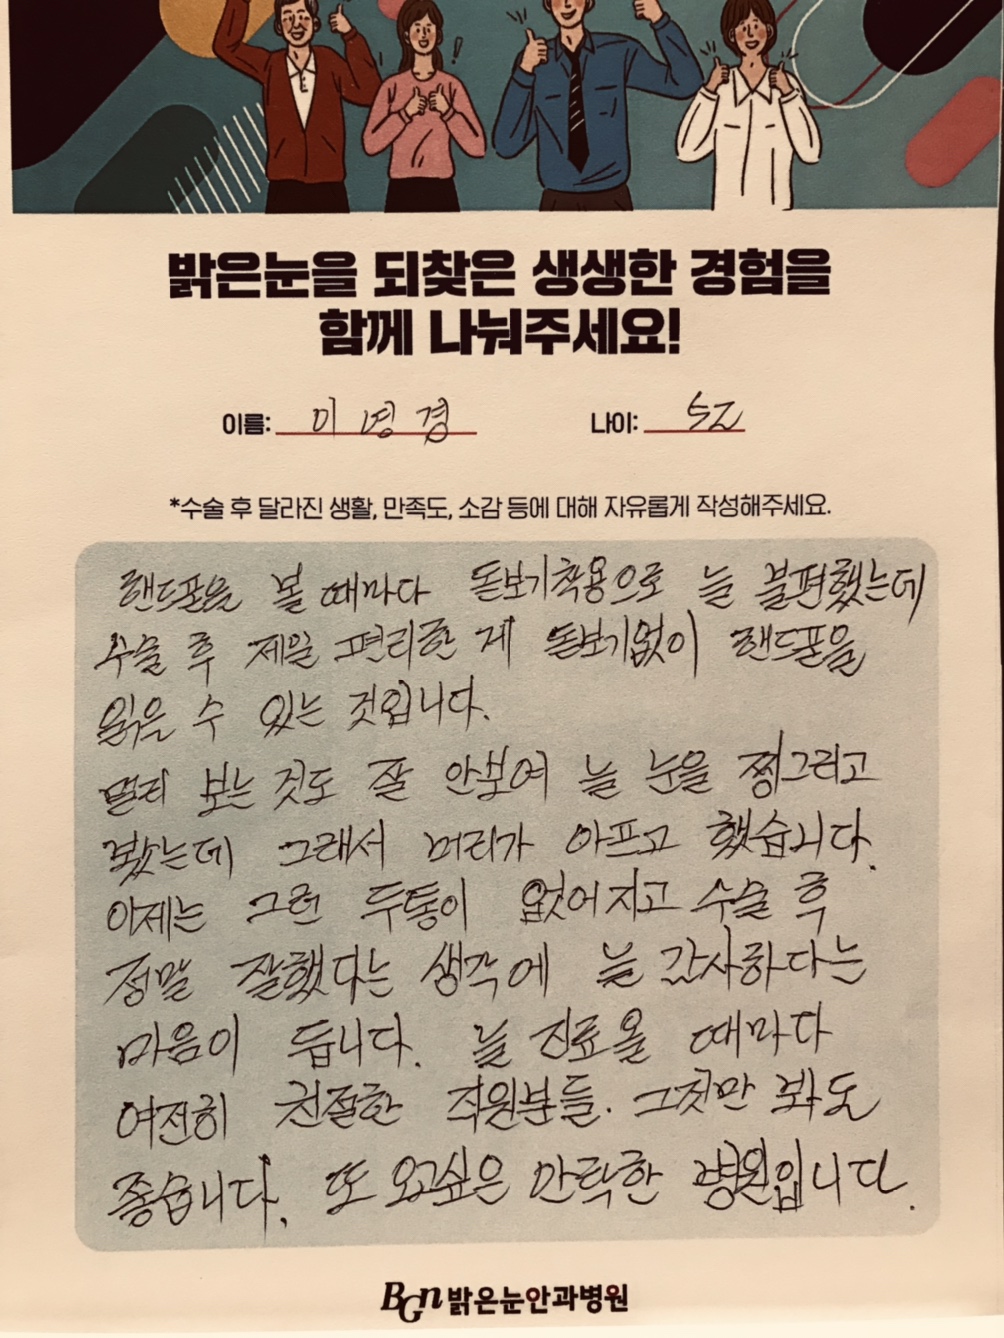 밝은눈을 되찾은 생생한 경험을
함께 나눠주세요!
이름: 이영경 나이: 52
*수술 후 달라진 생활, 만족도, 소감 등에 대해 자유롭게 작성해주세요.
핸드폰을 볼 때마다 돋보기착용으로 늘 불편했는데
수술 후 제일 편리한 게 돋보기없이 핸드폰을
읽을 수 있는 것입니다.
멀리 보는 것도 잘 안보여 늘 눈을 찡그리고
봤는데 그래서 머리가 아프고 했습니다.
이제는 그런 두통이 없어지고 수술 후
정말 잘했다는 생각에 늘 감사하다는
마음이 듭니다. 늘 진료올 때마다
여전히 친절한 직원분들. 그것만 봐도
좋습니다. 또 오고싶은 안락한 병원입니다.
BGN 밝은눈안과병원